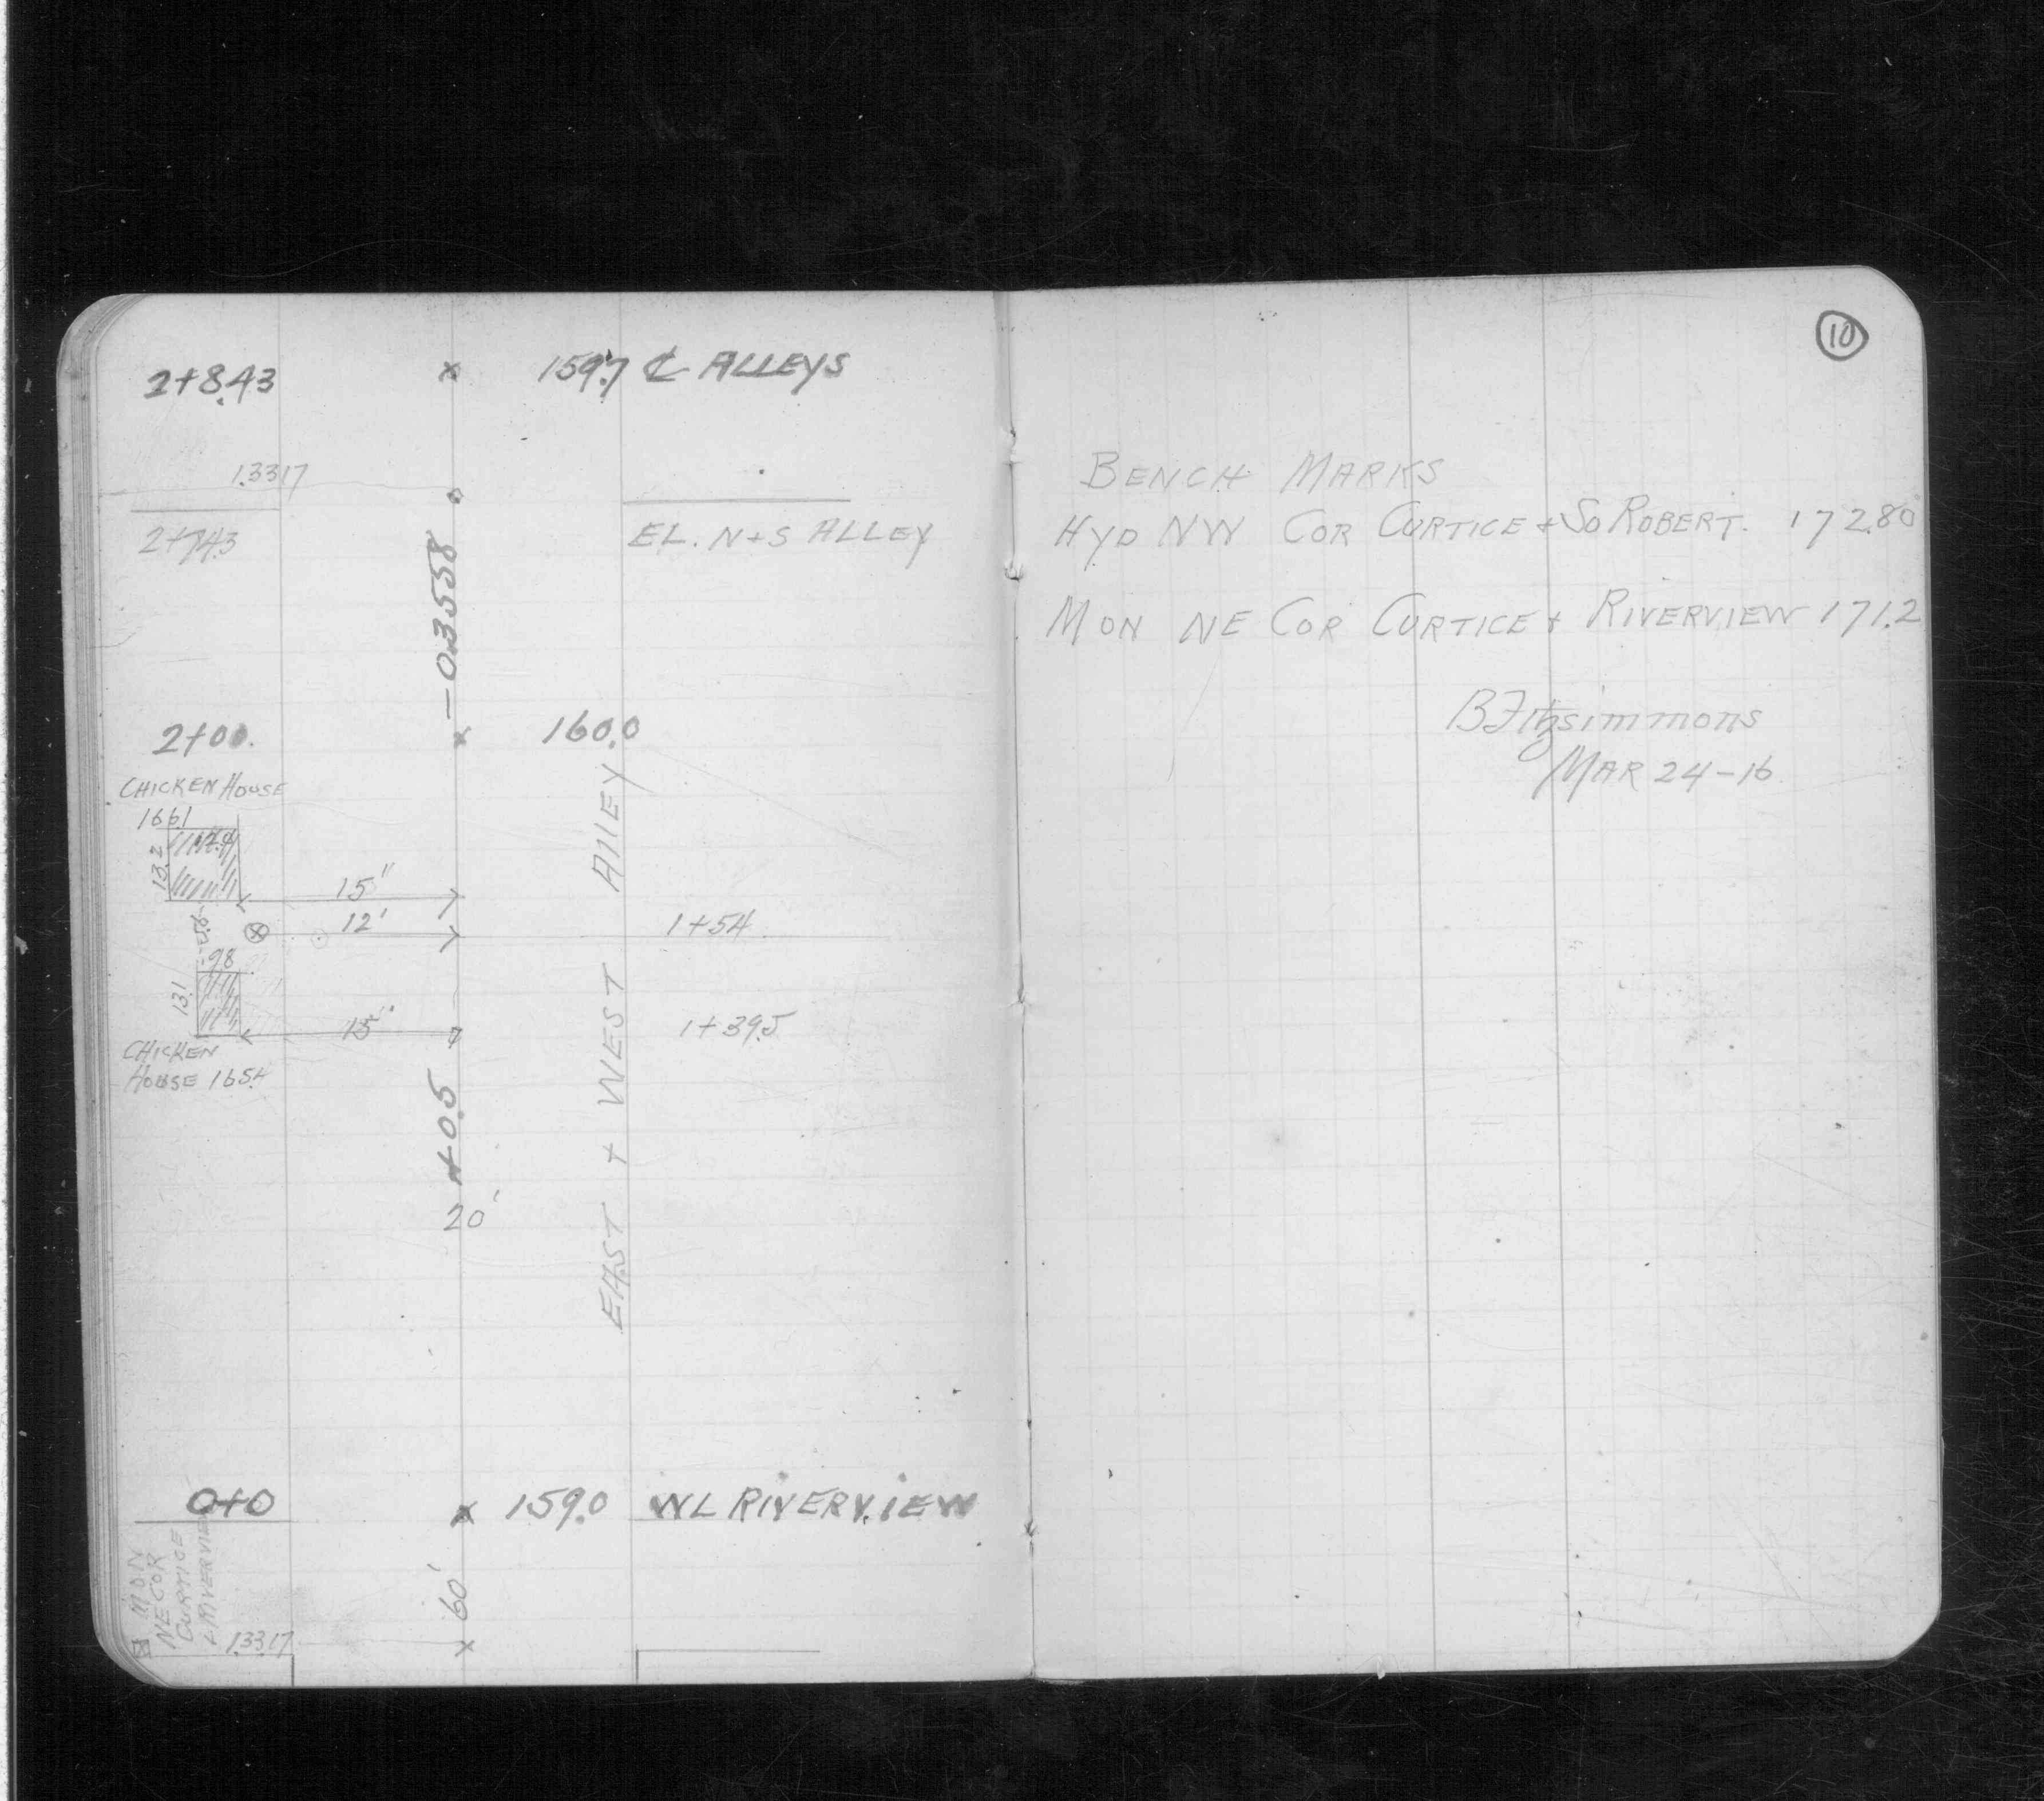 2+8.43 × 159.7 ℄ ALLEYS
133.17
2+74.3 EL. N+S ALLEY
-0.3558
2+00. × 160.0
CHICKEN HOUSE
166.1
13.2
15'
12' 1+54
9.8
13.1
15' 1+39.5
CHICKEN
HOUSE 165.4
+0.5
20'
EAST + WEST AllEY
0+0 × 159.0 WL RIVERVIEW
MON
NE COR
CURTICE
+ RIVERVIEW
133.17
60'
10
BENCH MARKS
HYD NW COR CURTICE + SO ROBERT. 172.80
MON NE COR CURTICE + RIVERVIEW 171.2
B Fitzsimmons
MAR 24-16